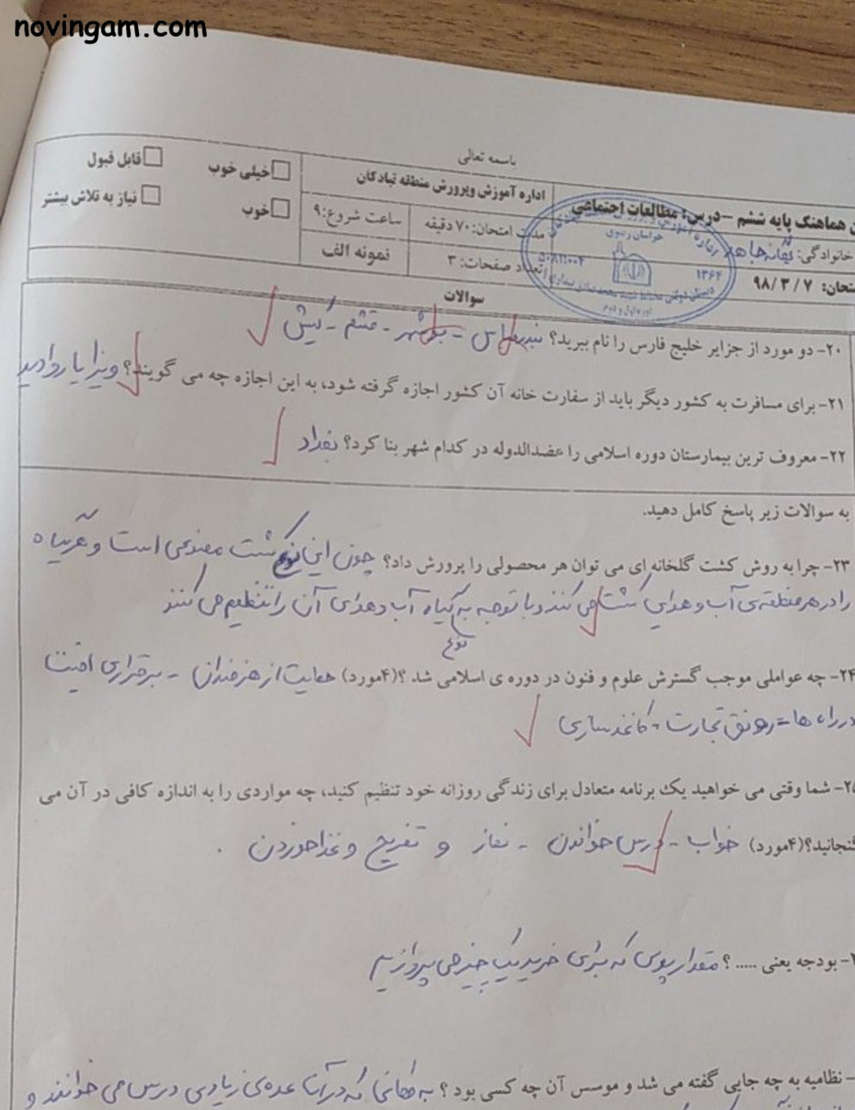 novingam.com
باسمه تعالی
ن هماهنگ پایه ششم – درس: مطالعات اجتماعی
خانوادگی:
متحان: ۹۸/۳/۷
اداره آموزش وپرورش منطقه تبادکان
مدت امتحان: ۷۰ دقیقه
ساعت شروع: ۹
تعداد صفحات: ۳
نمونه الف
خیلی خوب
قابل قبول
خوب
نیاز به تلاش بیشتر
خراسان رضوی
۱۳۶۴
سوالات
۲۰- دو مورد از جزایر خلیج فارس را نام ببرید؟ بندرعباس - بوشهر - قشم - کیش
۲۱- برای مسافرت به کشور دیگر باید از سفارت خانه آن کشور اجازه گرفته شود، به این اجازه چه می گویند؟ ویزا یا روادید
۲۲- معروف ترین بیمارستان دوره اسلامی را عضدالدوله در کدام شهر بنا کرد؟ بغداد
به سوالات زیر پاسخ کامل دهید.
۲۳- چرا به روش کشت گلخانه ای می توان هر محصولی را پرورش داد؟ چون این نوع کشت مصنوعی است و هر گیاه
را در هر منطقه ی آب و هوایی کشت می کنند و با توجه به نوع گیاه آب و هوای آن را تنظیم می کنند
۲۴- چه عواملی موجب گسترش علوم و فنون در دوره ی اسلامی شد ؟(۴مورد) حمایت از هنرمندان - برقراری امنیت
در راه ها - رونق تجارت - کاغذسازی
۲۵- شما وقتی می خواهید یک برنامه متعادل برای زندگی روزانه خود تنظیم کنید، چه مواردی را به اندازه کافی در آن می
گنجانید؟(۴مورد) خواب - درس خواندن - نماز و تفریح و غذا خوردن .
- بودجه یعنی ..... ؟ مقدار پولی که برای خرید یک چیز می پردازیم
- نظامیه به چه جایی گفته می شد و موسس آن چه کسی بود ؟ به مکانی که در آن عده ی زیادی درس می خوانند و